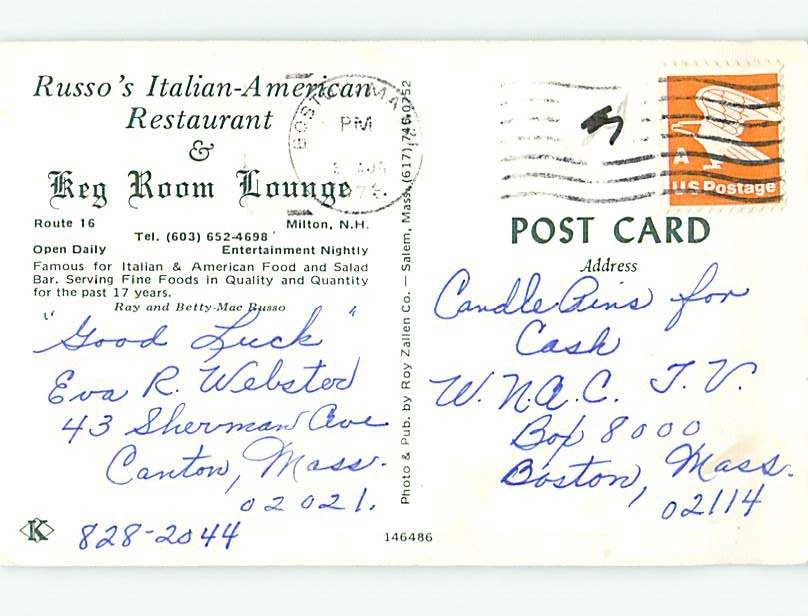 Russo's Italian-American
Restaurant
&
Keg Room Lounge
Route 16
Milton, N.H.
Tel. (603) 652-4698
Open Daily
Entertainment Nightly
Famous for Italian & American Food and Salad
Bar. Serving Fine Foods in Quality and Quantity
for the past 17 years.
Ray and Betty-Mae Russo
"Good Luck"
Eva R. Webster
43 Sherman Ave
Canton, Mass.
02021.
828-2044
K
Photo & Pub. by Roy Zallen Co. — Salem, Mass. (617) 745-0752
146486
BOSTON MA
PM
AUG
A
US Postage
POST CARD
Address
Candle Pins for
Cash
W.N.A.C. T.V.
Box 8000
Boston, Mass.
02114